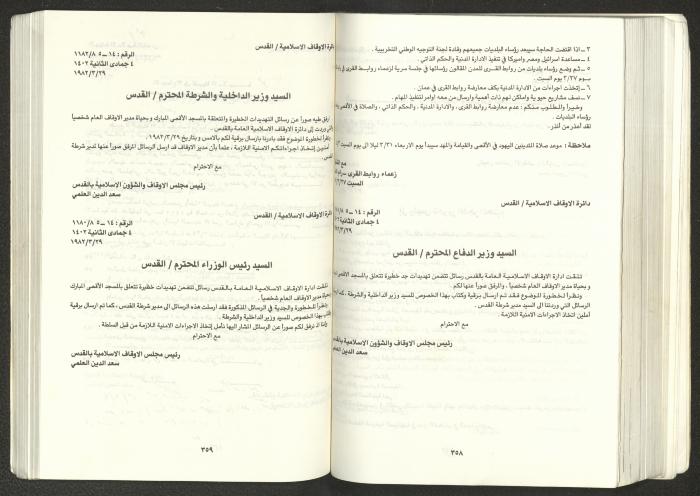 ٣ - اذا اقتضت الحاجة سيبعد رؤساء البلديات جميعهم وقادة لجنة التوجيه الوطني التخريبية .
٤ - مساعدة اسرائيل ومصر واميركا في تنفيذ الادارة المدنية والحكم الذاتي .
٥ - تم وضع رؤساء بلديات من روابط القرى للمدن القائلون رؤسائها في جلسة سرية لزعماء روابط القرى في
يوم ٣/٢٧ يوم السبت .
٦ - إتخذت اجراءات من الادارة المدنية بكف معارضة روابط القرى في عمان .
٧ - نسف مشاريع حيوية واماكن لهم ذات أهمية وارسال من معه اوامر لتنفيذ المهام .
وأخيراً والمطلوب منكم : عدم معارضة روابط القرى ، والادارة المدنية ، والحكم الذاتي ، والصلاة في الأقصى
رؤساء البلديات .
لقد أعذر من أنذر .
ملاحظة : موعد صلاة المتدينين اليهود في الأقصى والقيامة والمهد سيبدأ يوم الاربعاء ٣/٣١ ليلا الى يوم السبت
زعماء روابط القرى -
السبت
دائرة الاوقاف الاسلامية / القدس
الرقم : ١٤ - ٥
٤ جمادى الثانية
السيد وزير الدفاع المحترم / القدس
تلقت ادارة الاوقاف الاسلامية العامة بالقدس رسائل تتضمن تهديدات جد خطيرة تتعلق بالمسجد الأقصى
و بحياة مدير الاوقاف العام شخصياً ، والمرفق صوراً عنها لكم .
ونظراً لخطورة الموضوع فقد تم ارسال برقية وكتاب بهذا الخصوص للسيد وزير الداخلية والشرطة ،
الرسائل التي وردتنا الى السيد مدير شرطة القدس .
آملين اتخاذ الاجراءات الامنية اللازمة .
مع الاحترام
رئيس مجلس الاوقاف والشؤون الاسلامية بالقدس
سعد الدين
٣٥٨
دائرة الاوقاف الاسلامية / القدس
الرقم : ١٤ - ١١٨٢/٨ ٥
٤ جمادى الثانية ١٤٠٢
١٩٨٢/٣/٢٩
السيد وزير الداخلية والشرطة المحترم / القدس
ارفق طيه صوراً عن رسائل التهديدات الخطيرة والمتعلقة بالمسجد الأقصى المبارك و بحياة مدير الاوقاف العام شخصياً
وردت إلى دائرة الاوقاف الاسلامية العامة بالقدس .
لخطورة الموضوع فقد بادرنا بارسال برقية لكم بالامس وبتاريخ ١٩٨٢/٣/٢٩ .
آملين إتخاذ اجراءاتكم الامنية اللازمة ، علماً بأن مدير الاوقاف قد ارسل الرسائل المرفق صوراً عنها لمدير شرطة
مع الاحترام
رئيس مجلس الاوقاف والشؤون الاسلامية بالقدس
سعد الدين العلمي
دائرة الاوقاف الاسلامية / القدس
الرقم : ١٤ - ١١٨٠/٨ ٥
٤ جمادى الثانية ١٤٠٢
١٩٨٢/٣/٢٩
السيد رئيس الوزراء المحترم / القدس
تلقت ادارة الاوقاف الاسلامية العامة بالقدس رسائل تتضمن تهديدات خطيرة تتعلق بالمسجد الأقصى المبارك
و بحياة مدير الاوقاف العام شخصياً .
ونظراً للخطورة والجدية في الرسائل المذكورة فقد ارسلت هذه الرسائل الى مدير شرطة القدس ، كما تم ارسال برقية
بهذا الخصوص للسيد وزير الداخلية والشرطة .
اذ نرفق لكم صوراً عن الرسائل المشار اليها نأمل إتخاذ الاجراءات الامنية اللازمة من قبل السلطة .
مع الاحترام
رئيس مجلس الاوقاف الاسلامية بالقدس
سعد الدين العلمي
٣٥٩